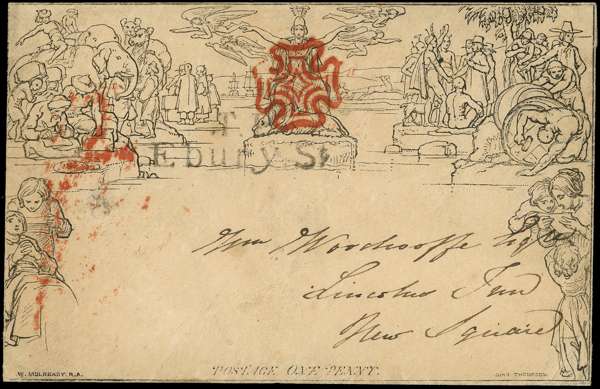 T.P
Ebury St
Wm Woodrooffe Esqre
Lincolns Inn
New Square
POSTAGE ONE PENNY.
W. MULREADY. R.A.
JOHN THOMPSON.